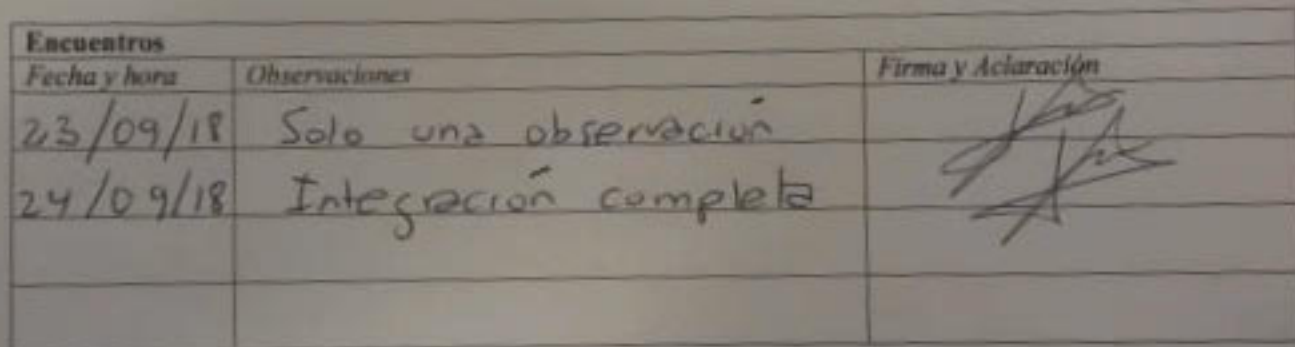 Encuentros
Fecha y hora Observaciones Firma y Aclaración
23/09/18 Solo una observación
24/09/18 Integración completa